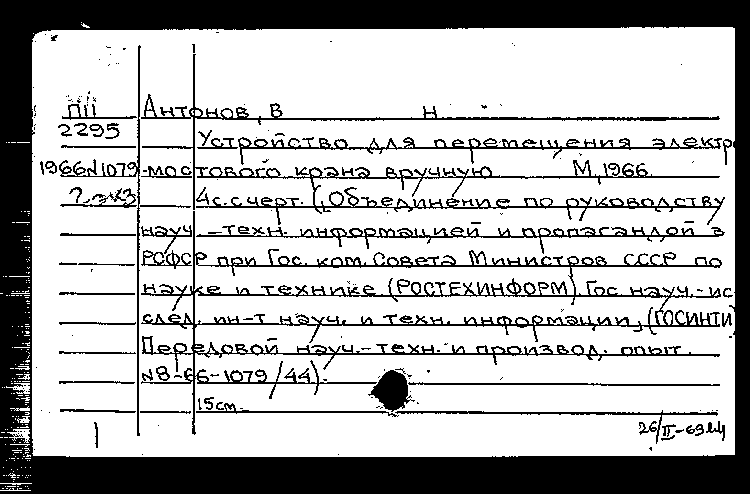 ПII Антонов, В Н
2295 Устройство для перемещения электро
1966 N1079 -мостового крана вручную М, 1966
2 экз 4с. с черт. („Объединение по руководству
науч. -техн. информацией и пропагандой в
РСФСР при Гос. ком. Совета Министров СССР по
науке и технике (РОСТЕХИНФОРМ) Гос науч.-ис
след. ин-т науч. и техн. информации„ (ГОСИНТИ
Передовой науч.-техн. и производ. опыт.
N8-66-1079/44).
15см.
26/II-69